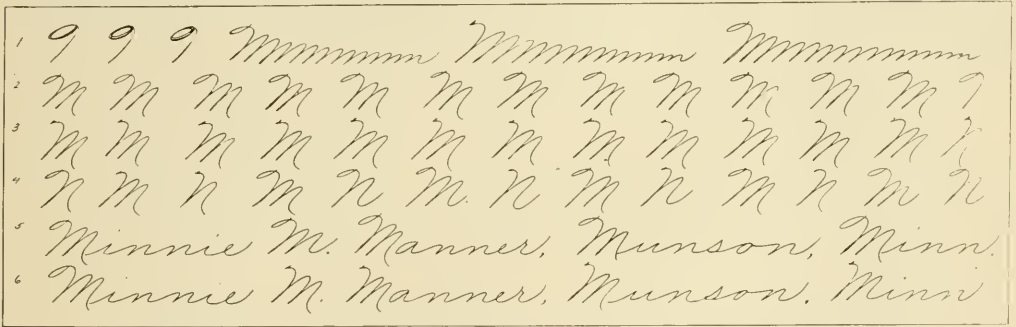 1 9 9 9 Mmmmmmm Mmmmmmm Mmmmmmmmm
2 M M M M M M M M M M M M 9
3 M M M M M M M M M M M M N
4 N M N M N M. N M N M N M N
5 Minnie M. Manner, Munson, Minn.
6 Minnie M. Manner, Munson. Minn